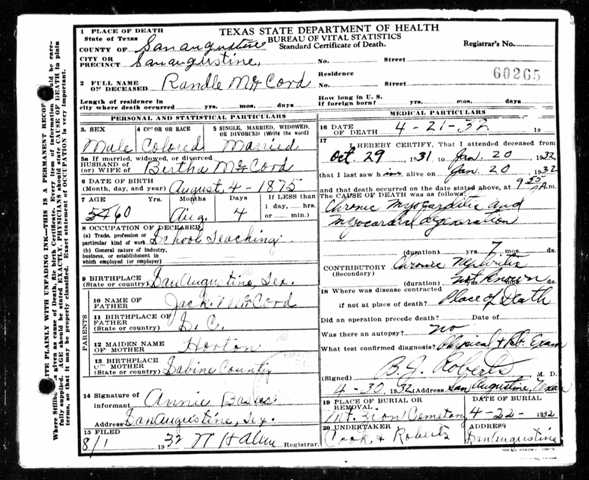 TEXAS STATE DEPARTMENT OF HEALTH
BUREAU OF VITAL STATISTICS
Standard Certificate of Death. Registrar's No.
1 PLACE OF DEATH
State of Texas
COUNTY OF San Augustine
CITY OR PRECINCT San Augustine No. Street
Residence
No. Street 60265
2 FULL NAME OF DECEASED Randle McCord
Length of residence in city where death occurred yrs. mos. ds. How long in U. S. if foreign born? yrs. mos. ds.
PERSONAL AND STATISTICAL PARTICULARS
3. SEX Male
4 COLOR OR RACE Colored
5 SINGLE, MARRIED, WIDOWED, OR DIVORCED (Write the word) Married
5a If married, widowed, or divorced
HUSBAND OF (or) WIFE OF Bertha McCord
6 DATE OF BIRTH
(Month, day, and year) August 4-1875
7 AGE Years Months Days If LESS than
60 Aug. 4 1 day, hrs. or min.
8 OCCUPATION OF DECEASED
(a) Trade, profession or particular kind of work School Teaching
(b) General nature of industry, business, or establishment in which employed (or employer)
9 BIRTHPLACE
(State or country) San Augustine, Tex.
PARENTS
10 NAME OF FATHER McCord
11 BIRTHPLACE OF FATHER
(State or country) S. C.
12 MAIDEN NAME OF MOTHER Horton
13 BIRTHPLACE OF MOTHER
(State or country) Sabine County
14 Signature of informant Annie
Address San Augustine, Tex.
15 FILED
8/1 1932 Registrar.
MEDICAL PARTICULARS
16 DATE OF DEATH 4-21-32 19
17 I HEREBY CERTIFY, That I attended deceased from
Oct. 29 1931 to Jan. 20 1932
that I last saw him alive on Jan. 20 1932
and that death occurred on the date stated above, at 9 M.
The CAUSE OF DEATH was as follows:
Chronic Myocarditis and
Myocardial degeneration
(duration) yrs. 7 mos. ds.
CONTRIBUTORY Chronic Nephritis
(Secondary) (duration) Not Known
18 Where was disease contracted
if not at place of death? Place of Death
Did an operation precede death?
Was there an autopsy? no
What test confirmed diagnosis? Physical + Lab. Exam
B. G. Roberts M. D.
(Signed)
4-30, 1932 Address San Augustine, Texas
19 PLACE OF BURIAL OR REMOVAL Mt. Iron Cemetery
DATE OF BURIAL 4-22-1932
20 UNDERTAKER Cook & Roberts
ADDRESS San Augustine